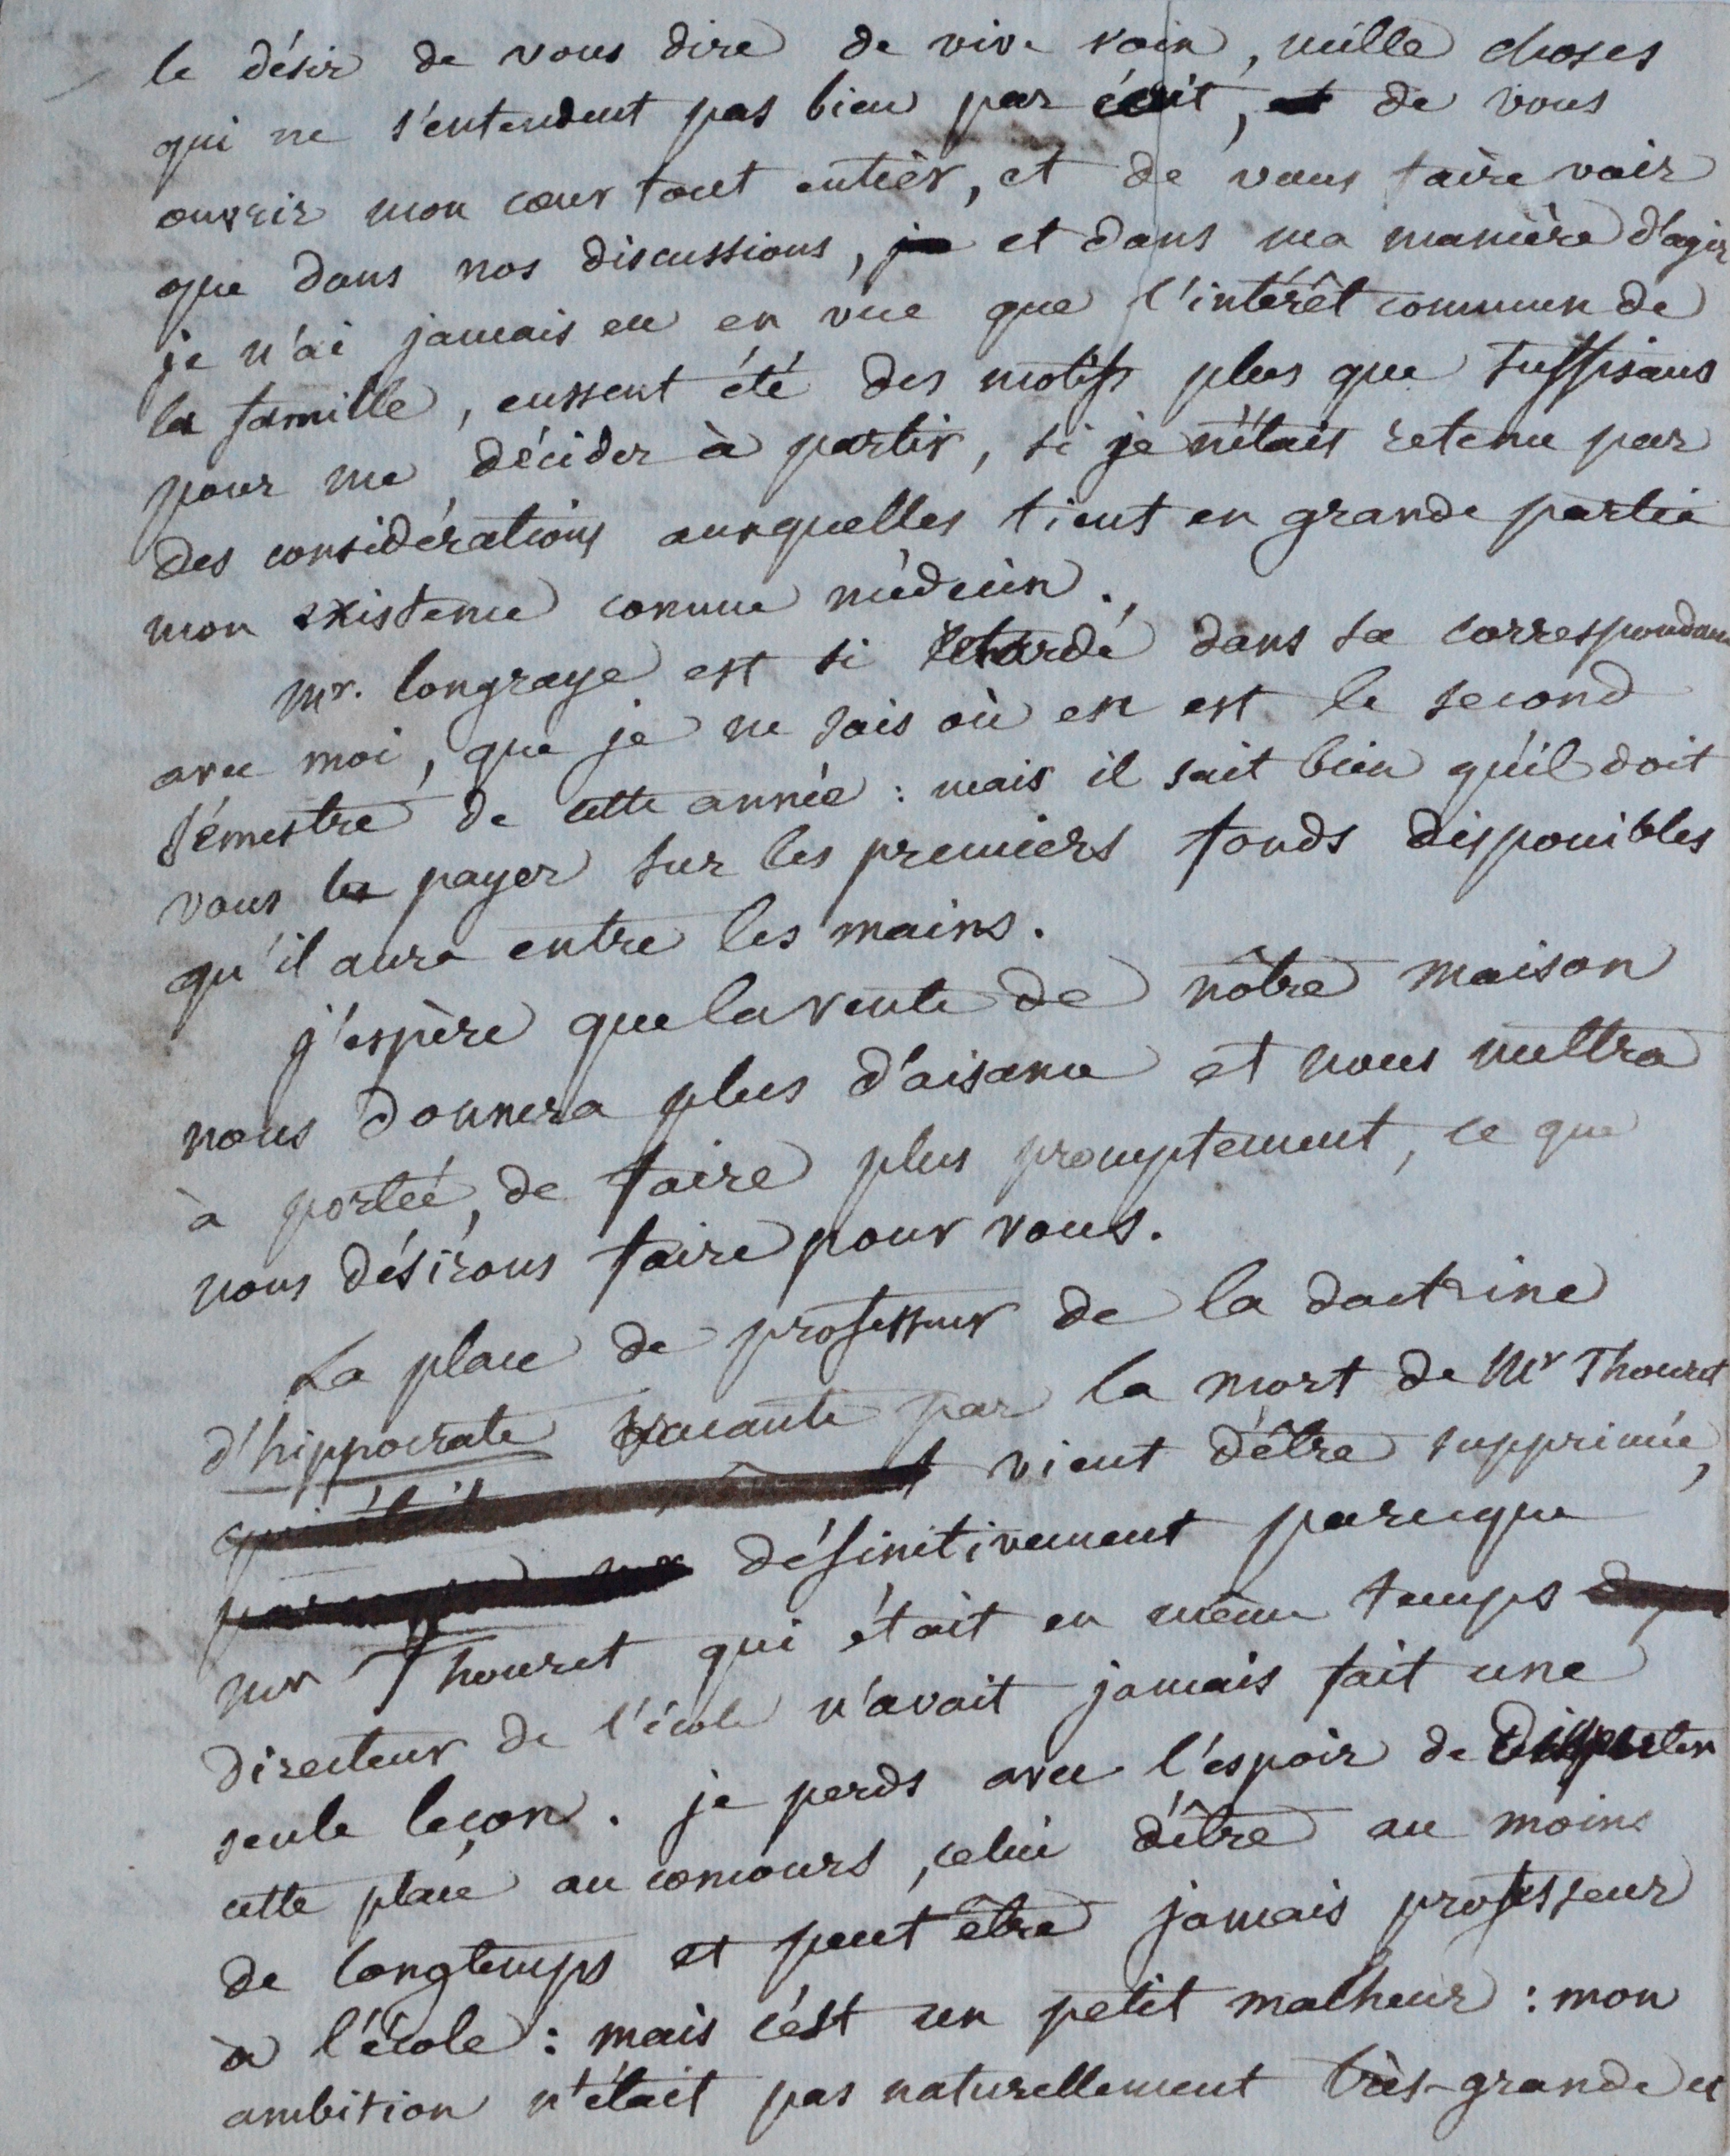 le désir de vous dire de vive voix, mille choses
qui ne s'entendent pas bien par écrit, et de vous
ouvrir mon cœur tout entièr, et de vous faire voir
que dans nos discussions, je et dans ma manière d'agir
je n'ai jamais eu en vue que l'intérêt commun de
la famille, eussent été des motifs plus que suffisans
pour me décider à partir, si je n'étais retenu par
des considérations auxquelles tient en grande partie
mon existence comme médecin.
mr. longraye est si retardé dans sa correspondance
avec moi, que je ne sais où en est le second
sémestre de cette année : mais il sait bien qu'il doit
vous le payer sur les premiers fonds disponibles
qu'il aura entre les mains.
j'espère que la vente de nôtre maison
nous donnera plus d'aisance et nous mettra
à portée, de faire plus promptement, ce que
nous désirons faire pour vous.
La place de professeur de la doctrine
d'hippocrate vacante par la mort de Mr Thouret
qui était vient d'être supprimée,
définitivement parceque
mr Thouret qui était en même temps
directeur de l'école n'avait jamais fait une
seule leçon. je perds avec l'espoir de disputer
cette place au concours, celui d'être au moins
de longtemps et peut être jamais professeur
à l'école : mais c'est un petit malheur : mon
ambition n'était pas naturellement très-grande et